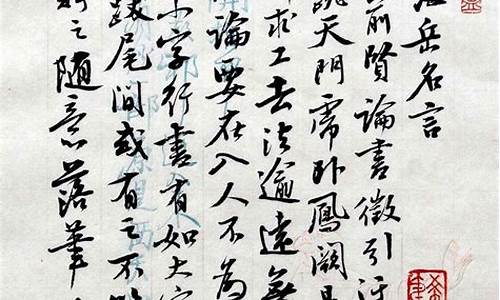 海岳名言
前賢論書徵引迂
跳天門虎卧鳳闕是
求工去法逾遠無
論要在入人不為
小字行書有如大字
跋尾間或有之不以
之隨意落筆